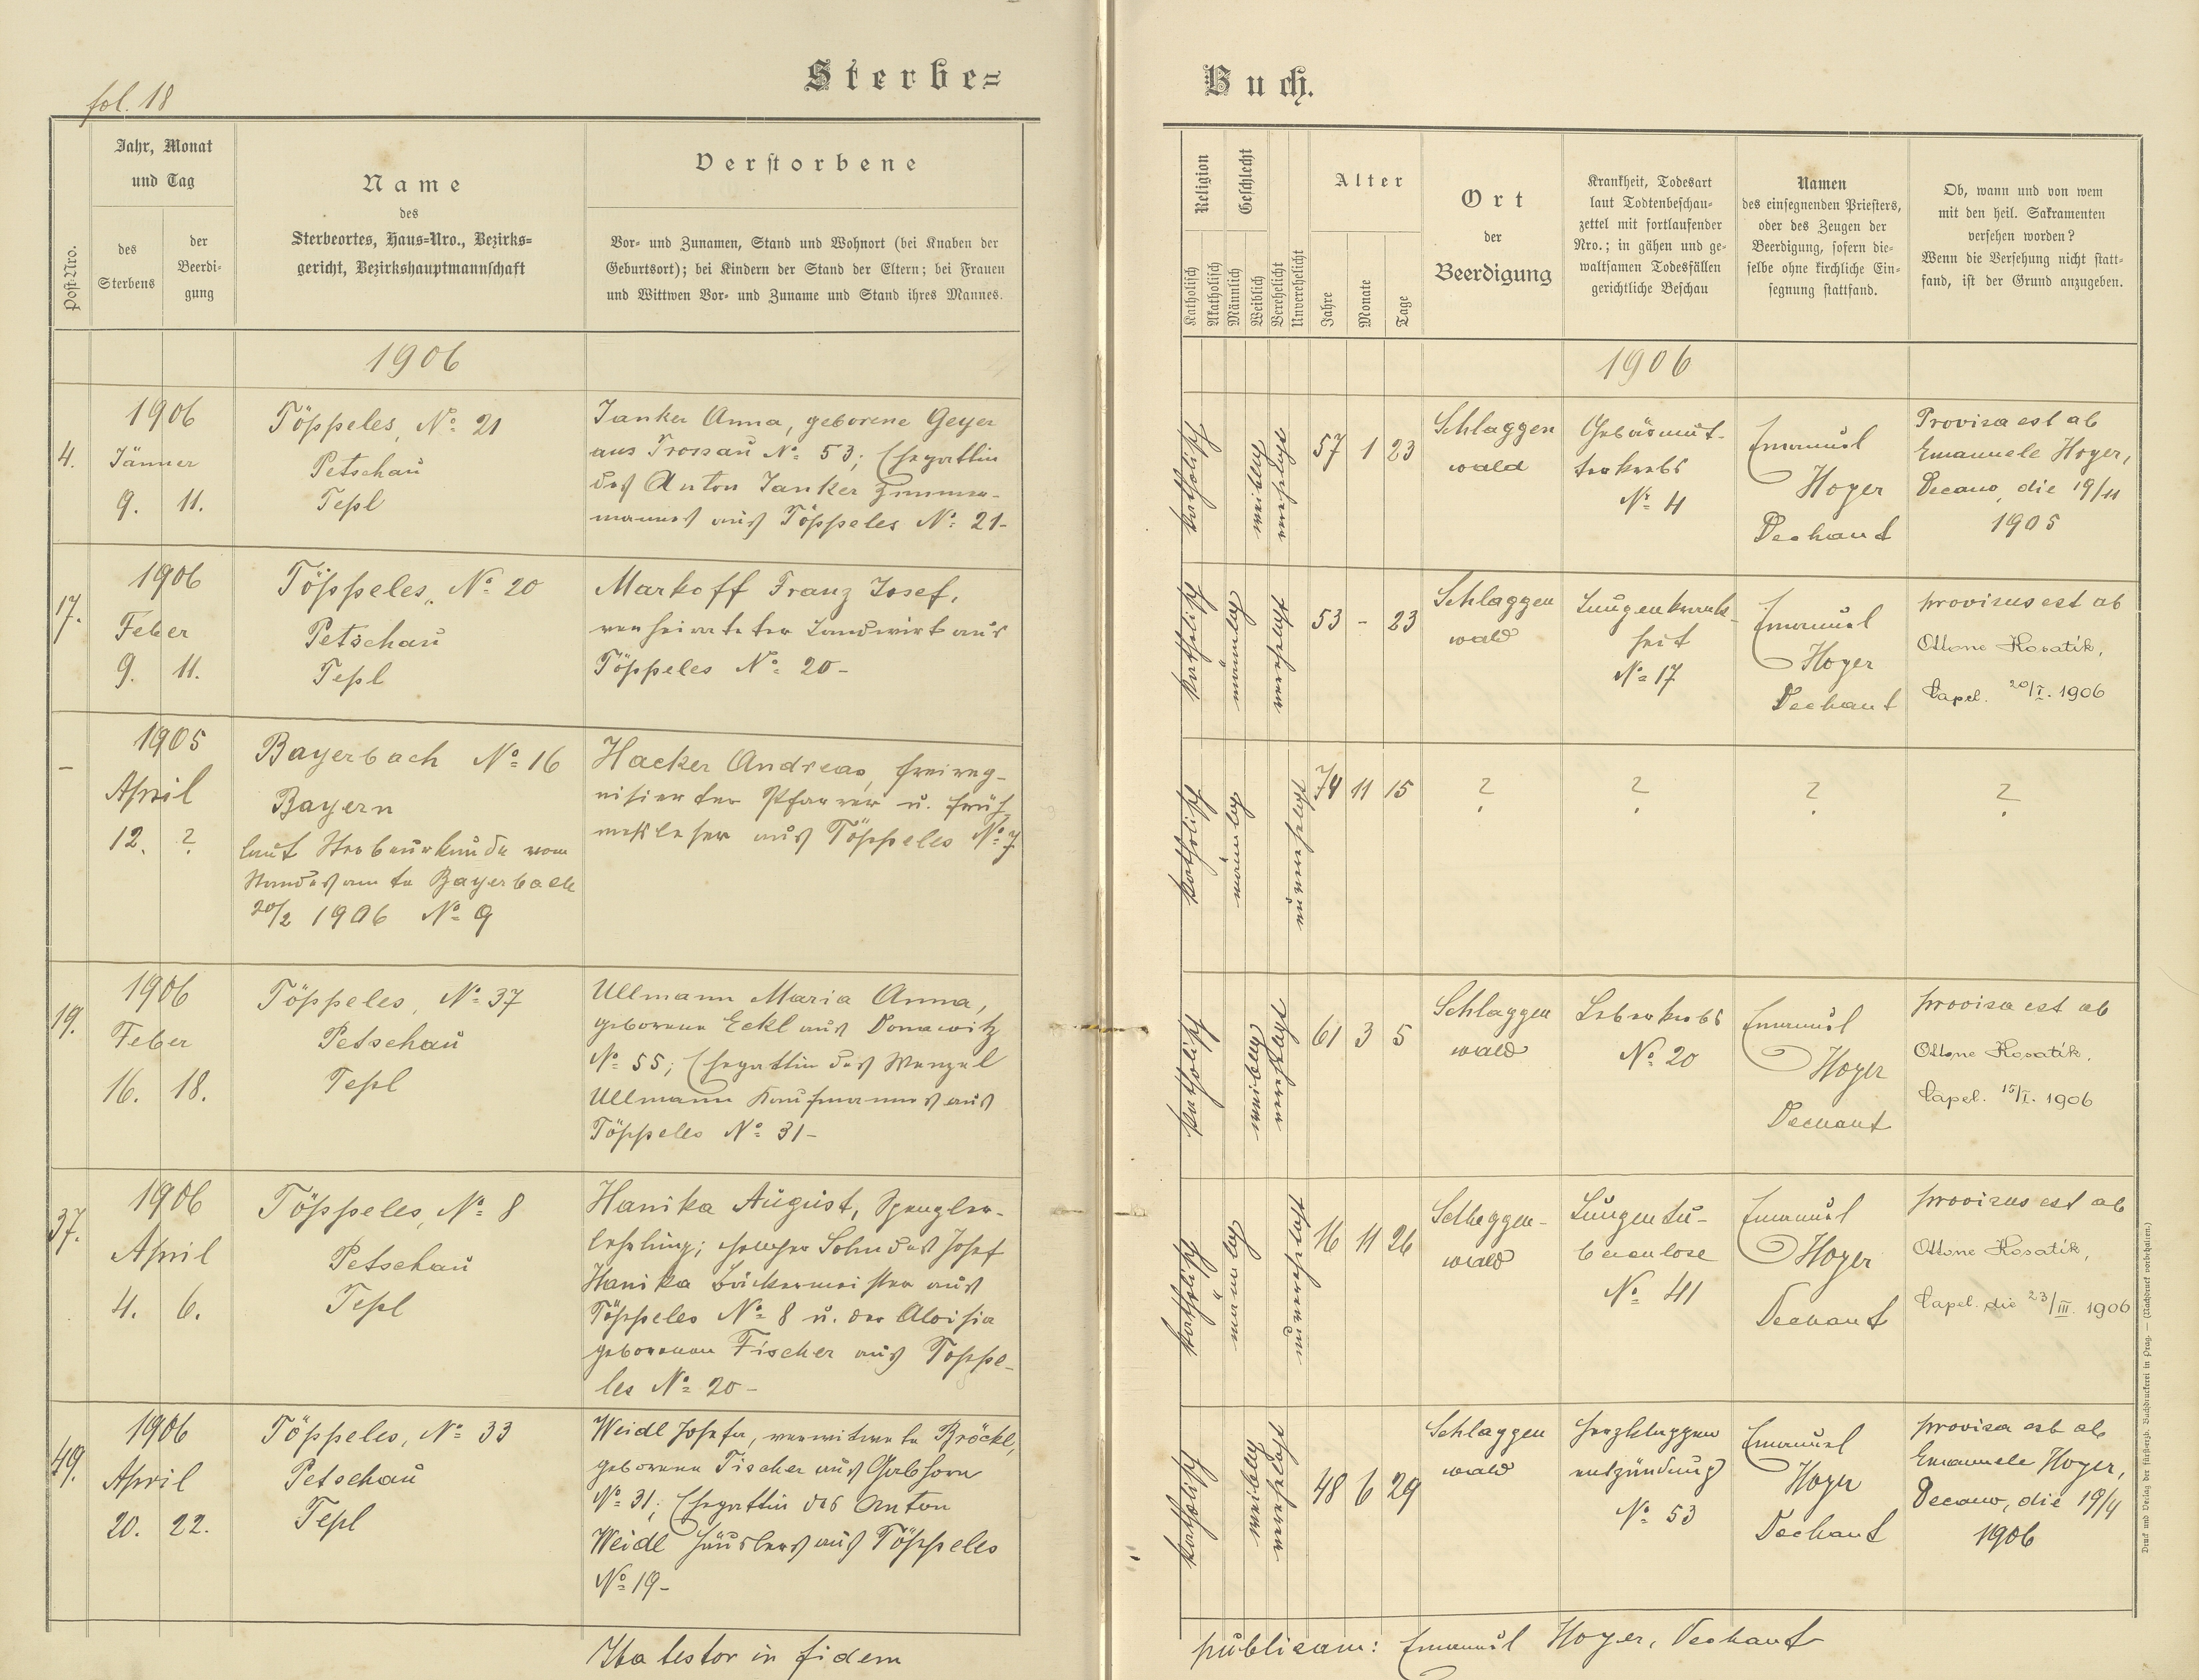 fol. 18
Sterbe=
Jahr, Monat
und Tag
Post-Nro.
des
Sterbens
der
Beerdi-
gung
Name
des
Sterbeortes, Haus-Nro., Bezirks=
gericht, Bezirkshauptmannschaft
Verstorbene
Vor- und Zunamen, Stand und Wohnort (bei Knaben der
Geburtsort); bei Kindern der Stand der Eltern; bei Frauen
und Wittwen Vor- und Zuname und Stand ihres Mannes.
1906
4.
1906
Jänner
9. 11.
Töppeles, No 21
Petschau
Tepl
Janker Anna, geborene Geyer
aus Trossau No 53; Ehegattin
des Anton Janker Zimmer-
manns aus Töppeles No 21-
17.
1906
Feber
9. 11.
Töppeles, No 20
Petschau
Tepl
Markoff Franz Josef,
verheirateter Landwirt aus
Töppeles No 20-
-
1905
April
12. ?
Bayerbach No 16
Bayern
laut Sterbeurkunde vom
Standesamte Bayerbach
20/2 1906 No 9
Hacker Andreas, freiresig-
nisierter Pfarrer u. Früh
messleser aus Töppeles No 7
19.
1906
Feber
16. 18.
Töppeles, No 37
Petschau
Tepl
Ullmann Maria Anna,
geborene Eckl aus Donawitz
No 55; Ehegattin des Wenzel
Ullmann Kaufmanns aus
Töppeles No 31-
37.
1906
April
4. 6.
Töppeles, No 8
Petschau
Tepl
Hanika August, Spengler-
lehrling; ehelicher Sohn des Josef
Hanika Bäckermeister aus
Töppeles No 8 u. der Aloisia
geborenen Fischer aus Töppe-
les No 20-
49.
1906
April
20. 22.
Töppeles, No 33
Petschau
Tepl
Weidl Josefa, verwitwete Bröckl,
geborene Fischer aus Gabhorn
No 31; Ehegattin des Anton
Weidl Häuslers aus Töppeles
No 19-
Ita testor in fidem
Buch.
Religion
Katholisch
Akatholisch
Geschlecht
Männlich
Weiblich
Verehelicht
Unverehelicht
Alter
Jahre
Monate
Tage
Ort
der
Beerdigung
Krankheit, Todesart
laut Todtenbeschau-
zettel mit fortlaufender
Nro.; in gähen und ge-
waltsamen Todesfällen
gerichtliche Beschau
Namen
des einsegnenden Priesters,
oder des Zeugen der
Beerdigung, sofern die-
selbe ohne kirchliche Ein-
segnung stattfand.
Ob, wann und von wem
mit den heil. Sakramenten
versehen worden?
Wenn die Versehung nicht statt-
fand, ist der Grund anzugeben.
1906
katholisch
weiblich
verehelicht
57 1 23
Schlaggen
wald
Gebärmut-
terkrebs
No 4
Emanuel
Hoyer
Dechant
Provisa est ab
Emanuele Hoyer,
Decano, die 19/11
1905
katholisch
männlich
verehelicht
53 - 23
Schlaggen
wald
Lungenkrank-
heit
No 17
Emanuel
Hoyer
Dechant
provisus est ab
Ottone Kosatík,
Capel. 20/I. 1906
katholisch
männlich
unverehelicht
74 11 15
?
?
?
?
katholisch
weiblich
verehelicht
61 3 5
Schlaggen
wald
Leberkrebs
No 20
Emanuel
Hoyer
Dechant
provisa est ab
Ottone Kosatík,
Capel. 15/I. 1906
katholisch
männlich
unverehelicht
16 11 26
Schlaggen-
wald
Lungentu-
berculose
No 41
Emanuel
Hoyer
Dechant
provisus est ab
Ottone Kosatík,
Capel. die 23/III. 1906
katholisch
weiblich
verehelicht
48 6 29
Schlaggen
wald
Herzklappen
entzündung
No 53
Emanuel
Hoyer
Dechant
provisa est ab
Emanuele Hoyer,
Decano, die 19/4
1906
publicam: Emanuel Hoyer, Dechant
Druck und Verlag der fürsterzb. Buchdruckerei in Prag. — (Nachdruck vorbehalten.)